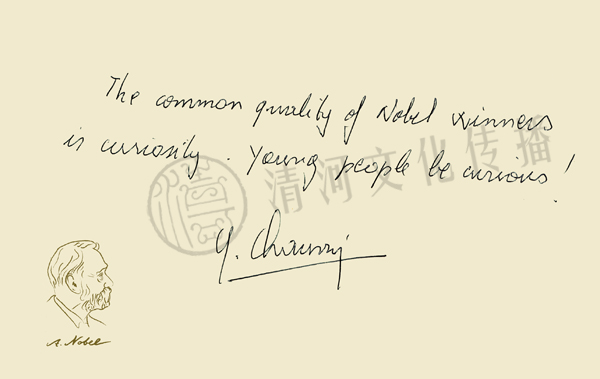 The common quality of Nobel winners
is curiosity. Young people be curious!
清河文化传播
Y. Chauvin
A. Nobel